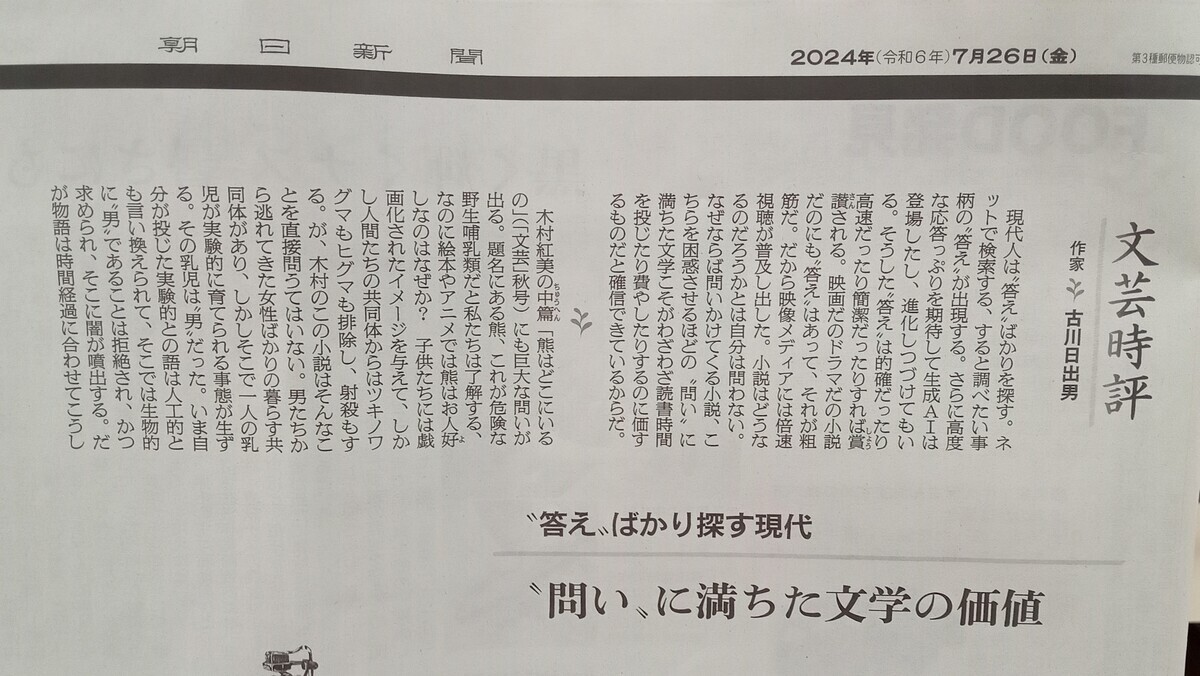 朝日新聞
2024年(令和6年)7月26日(金)
第3種郵便物認可
文芸時評
作家 古川日出男
現代人は〝答え〟ばかりを探す。ネ
ットで検索する、すると調べたい事
柄の〝答え〟が出現する。さらに高度
な応答っぷりを期待して生成AIは
登場したし、進化しつづけてもい
る。そうした〝答え〟は的確だったり
高速だったり簡潔だったりすれば賞
讃される。映画だのドラマだの小説
だのにも〝答え〟はあって、それが粗
筋だ。だから映像メディアには倍速
視聴が普及し出した。小説はどうな
るのだろうかとは自分は問わない。
なぜならば問いかけてくる小説、こ
ちらを困惑させるほどの〝問い〟に
満ちた文学こそがわざわざ読書時間
を投じたり費やしたりするのに価す
るものだと確信できているからだ。
木村紅美の中篇「熊はどこにいる
の」(「文芸」秋号)にも巨大な問いが
出る。題名にある熊、これが危険な
野生哺乳類だと私たちは了解する、
なのに絵本やアニメでは熊はお人好
しなのはなぜか? 子供たちには戯
画化されたイメージを与えて、しか
し人間たちの共同体からはツキノワ
グマもヒグマも排除し、射殺もす
る。が、木村のこの小説はそんなこ
とを直接問うてはいない。男たちか
ら逃れてきた女性ばかりの暮らす共
同体があり、しかしそこで一人の乳
児が実験的に育てられる事態が生ず
る。その乳児は〝男〟だった。いま自
分が投じた実験的との語は人工的と
も言い換えられて、そこでは生物的
に〝男〟であることは拒絶され、かつ
求められ、そこに闇が噴出する。だ
が物語は時間経過に合わせてこうし
〝答え〟ばかり探す現代
〝問い〟に満ちた文学の価値